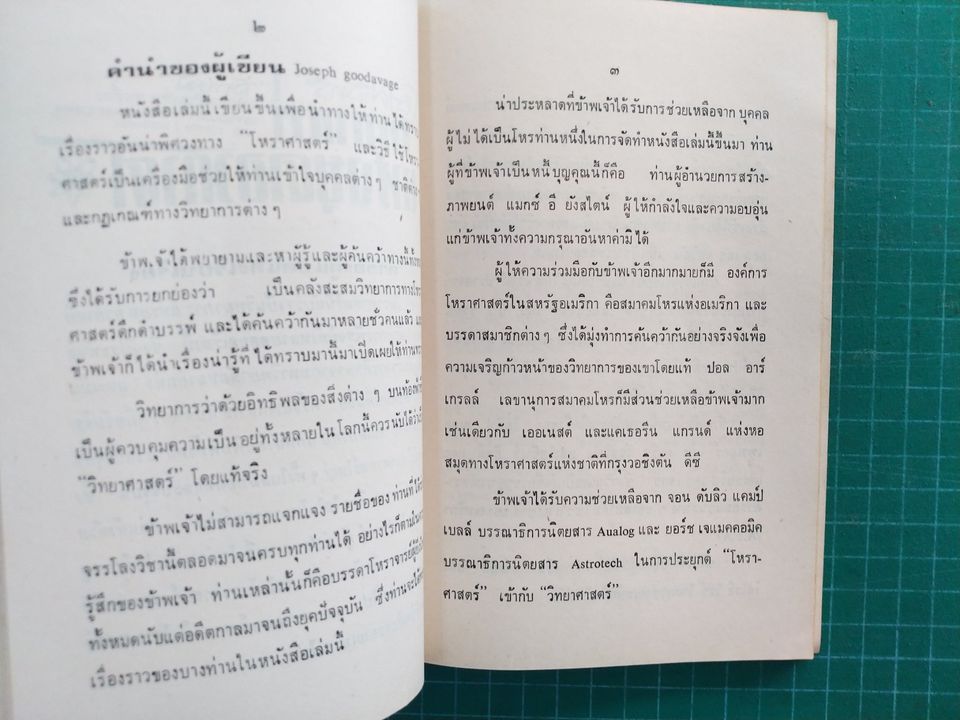 ๒
คำนำของผู้เขียน Joseph goodavage
หนังสือเล่มนี้เขียนขึ้นเพื่อนำทางให้ท่านได้
เรื่องราวอันน่าพิศวงทาง "โหราศาสตร์" และวิธีใช้
ศาสตร์เป็นเครื่องมือช่วยให้ท่านเข้าใจบุคคลต่างๆ ชาติ
และกฏเกณฑ์ทางวิทยาการต่างๆ
ข้าพเจ้าได้พยายามและหาผู้รู้และผู้ค้นคว้าทางนี้
ซึ่งได้รับการยกย่องว่า เป็นคลังสะสมวิทยาการทาง
ศาสตร์ดึกดำบรรพ์ และได้ค้นคว้ากันมาหลายชั่วคนแล้ว
ข้าพเจ้าก็ได้นำเรื่องน่ารู้ที่ได้ทราบมานี้มาเปิดเผยให้ท่าน
วิทยาการว่าด้วยอิทธิพลของสิ่งต่าง ๆ บนท้อง
เป็นผู้ควบคุมความเป็นอยู่ทั้งหลายในโลกนี้ควรนับได้
"วิทยาศาสตร์" โดยแท้จริง
ข้าพเจ้าไม่สามารถแจกแจง รายชื่อของ ท่านที่
จรรโลงวิชานี้ตลอดมาจนครบทุกท่านได้ อย่างไรก็ตาม
รู้สึกของข้าพเจ้า ท่านเหล่านั้นก็คือบรรดาโหราจารย์
ทั้งหมดนับแต่อดีตกาลมาจนถึงยุคปัจจุบัน ซึ่งท่านจะได้
เรื่องราวของบางท่านในหนังสือเล่มนี้
๓
น่าประหลาดที่ข้าพเจ้าได้รับการช่วยเหลือจาก บุคคล
ผู้ไม่ได้เป็นโหรท่านหนึ่งในการจัดทำหนังสือเล่มนี้ขึ้นมา ท่าน
ผู้ที่ข้าพเจ้าเป็นหนี้บุญคุณนี้ก็คือ ท่านผู้อำนวยการสร้าง-
ภาพยนต์ แมกซ์ อี ยังสไตน์ ผู้ให้กำลังใจและความอบอุ่น
แก่ข้าพเจ้าทั้งความกรุณาอันหาค่ามิได้
ผู้ให้ความร่วมมือกับข้าพเจ้าอีกมากมายก็มี องค์การ
โหราศาสตร์ในสหรัฐอเมริกา คือสมาคมโหรแห่งอเมริกา และ
บรรดาสมาชิกต่าง ๆ ซึ่งได้มุ่งทำการค้นคว้ากันอย่างจริงจังเพื่อ
ความเจริญก้าวหน้าของวิทยาการของเขาโดยแท้ ปอล อาร์
เกรลล์ เลขานุการสมาคมโหรก็มีส่วนช่วยเหลือข้าพเจ้ามาก
เช่นเดียวกับ เออเนสต์ และแคเธอรีน แกรนด์ แห่งหอ
สมุดทางโหราศาสตร์แห่งชาติที่กรุงวอชิงตัน ดีซี
ข้าพเจ้าได้รับความช่วยเหลือจาก จอน ดับลิว แคมป์
เบลล์ บรรณาธิการนิตยสาร Aualog และ ยอร์ช เจแมคคอมิค
บรรณาธิการนิตยสาร Astrotech ในการประยุกต์ "โหรา-
ศาสตร์" เข้ากับ "วิทยาศาสตร์"